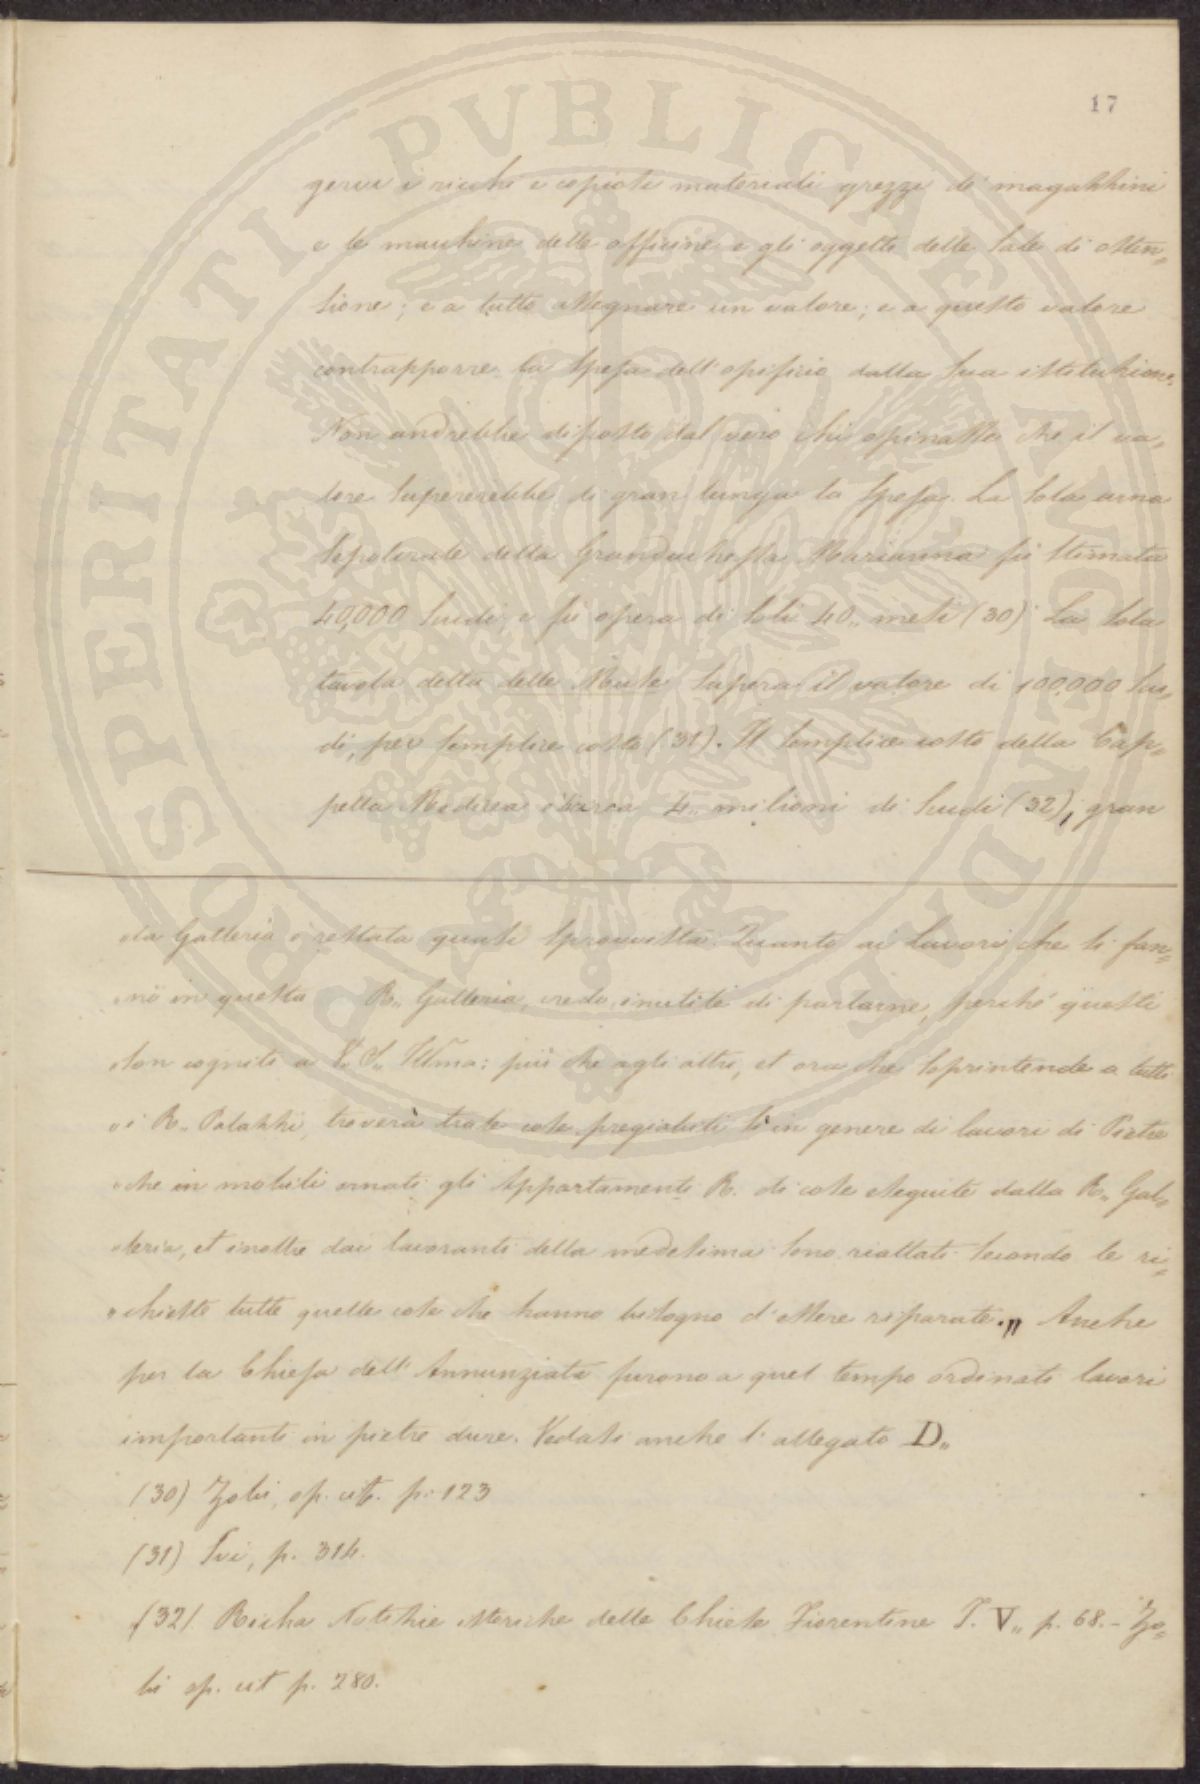 17
gervi i ricchi e copiosi materiali grezzi de' magazzini
e le macchine delle officine e gli oggetti delle sale di osten=
sione; e a tutto assegnare un valore; e a questo valore
contrapporre la spesa dell'opificio dalla sua istituzione.
Non andrebbe discosto dal vero chi opinasse che il va=
lore supererebbe di gran lunga la spesa. La sola urna
sepolcrale della Granduchessa Marianna fu stimata
40,000 scudi, e fu opera di soli 40,, mesi (30) La sola
tavola detta delle Muse supera il valore di 100,000 scu=
di, per semplice costo (31). Il semplice costo della Cap=
pella Medicea è circa 4,, milioni di scudi (32), gran
„la Galleria è restata quasi sprovvista. Quanto ai lavori che si fan=
„no in questa R,, Galleria, credo inutile di parlarne, perchè questi
„son cogniti a V. S,, Illma: più che agli altri, et ora che soprintende a tutti
„i R,, Palazzi, troverà tra le cose pregiabili sì in genere di lavori di Pietre
„che in mobili ornati gli Appartamenti R. di cose eseguite dalla R,, Gal=
„leria, et inoltre dai lavoranti della medesima sono riattati secondo le ri=
„chieste tutte quelle cose che hanno bisogno d'essere riparate.„ Anche
per la Chiesa dell'Annunziata furono a quel tempo ordinati lavori
importanti in pietre dure. Vedasi anche l'allegato D,,
(30) Zobi, op. cit. p. 123
(31) Ivi, p. 314.
(32) Richa Notizie istoriche delle Chiese Fiorentine T. V,, p. 68. - Zo=
bi op. cit p. 280.
PROSPERITATI PVBLICAE AVGENDAE